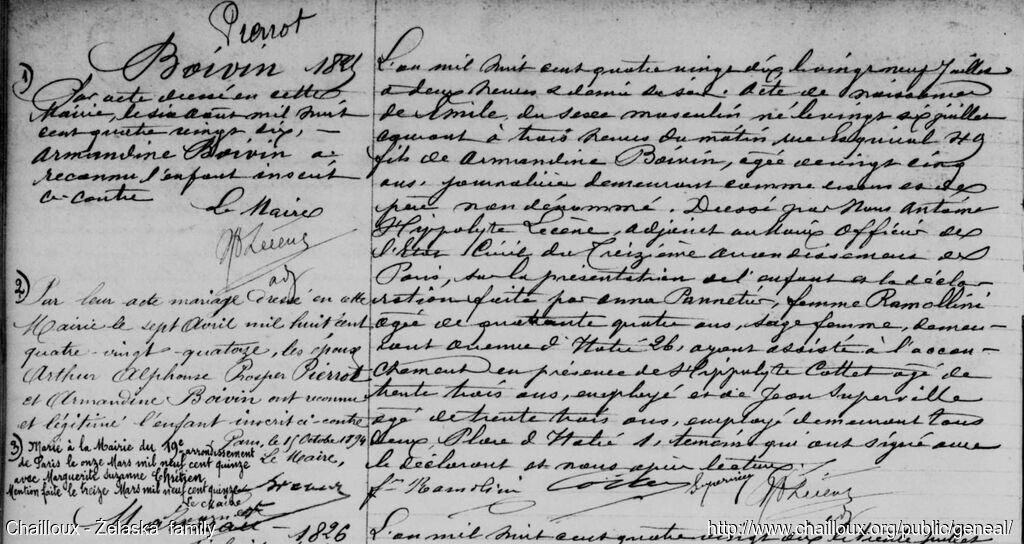 Pierrot
Boivin 1825
1)
Par acte dressé en cette
Mairie, le six août mil huit
cent quatre vingt dix, —
Armandine Boivin a
reconnu l'enfant inscrit
ci-contre
Le Maire
adj
2)
Par leur acte mariage dressé en cette
Mairie le sept Avril mil huit cent
quatre-vingt-quatorze, les époux
Arthur Alphonse Prosper Pierrot
et Armandine Boivin ont reconnu
et légitimé l'enfant inscrit ci-contre
Paris, le 15 Octobre 1894
Le Maire,
3) Marié à la Mairie du 19e arrondissement
de Paris le onze Mars mil neuf cent quinze
avec Marguerite Suzanne
Mention faite le treize Mars mil neuf cent quinze
Le Maire
1826
L'an mil huit cent quatre vingt dix le vingt neuf Juillet
à deux heures & demie du soir. Acte de naissance
de Emile, du sexe masculin né le vingt six juillet
courant à trois heures du matin, rue 49
fils de Armandine Boivin, agée de vingt cinq
ans, journalière demeurant comme dessus et de
père non dénommé. Dressé par Nous Antoine
Hippolyte Lecène, adjoint au Maire Officier de
l'Etat Civil du Treizième arrondissement de
Paris, sur la présentation de l'enfant et la décla-
ration faite par Anna Pannetier, femme Ramollini
agée de quarante quatre ans, sage femme, demeu-
rant avenue d'Italie 26, ayant assisté à l'accou-
chement en présence de Hippolyte Cottet agé de
trente trois ans, employé et de Jean Superville
agé de trente trois ans, employé demeurant tous
deux, Place d'Italie 1, témoins qui ont signé avec
le déclarant et nous après lecture.
fe Ramolini
L'an mil huit cent quatre vingt dix le trente juillet
Chailloux - Zelaska family
http://www.chailloux.org/public/geneal/